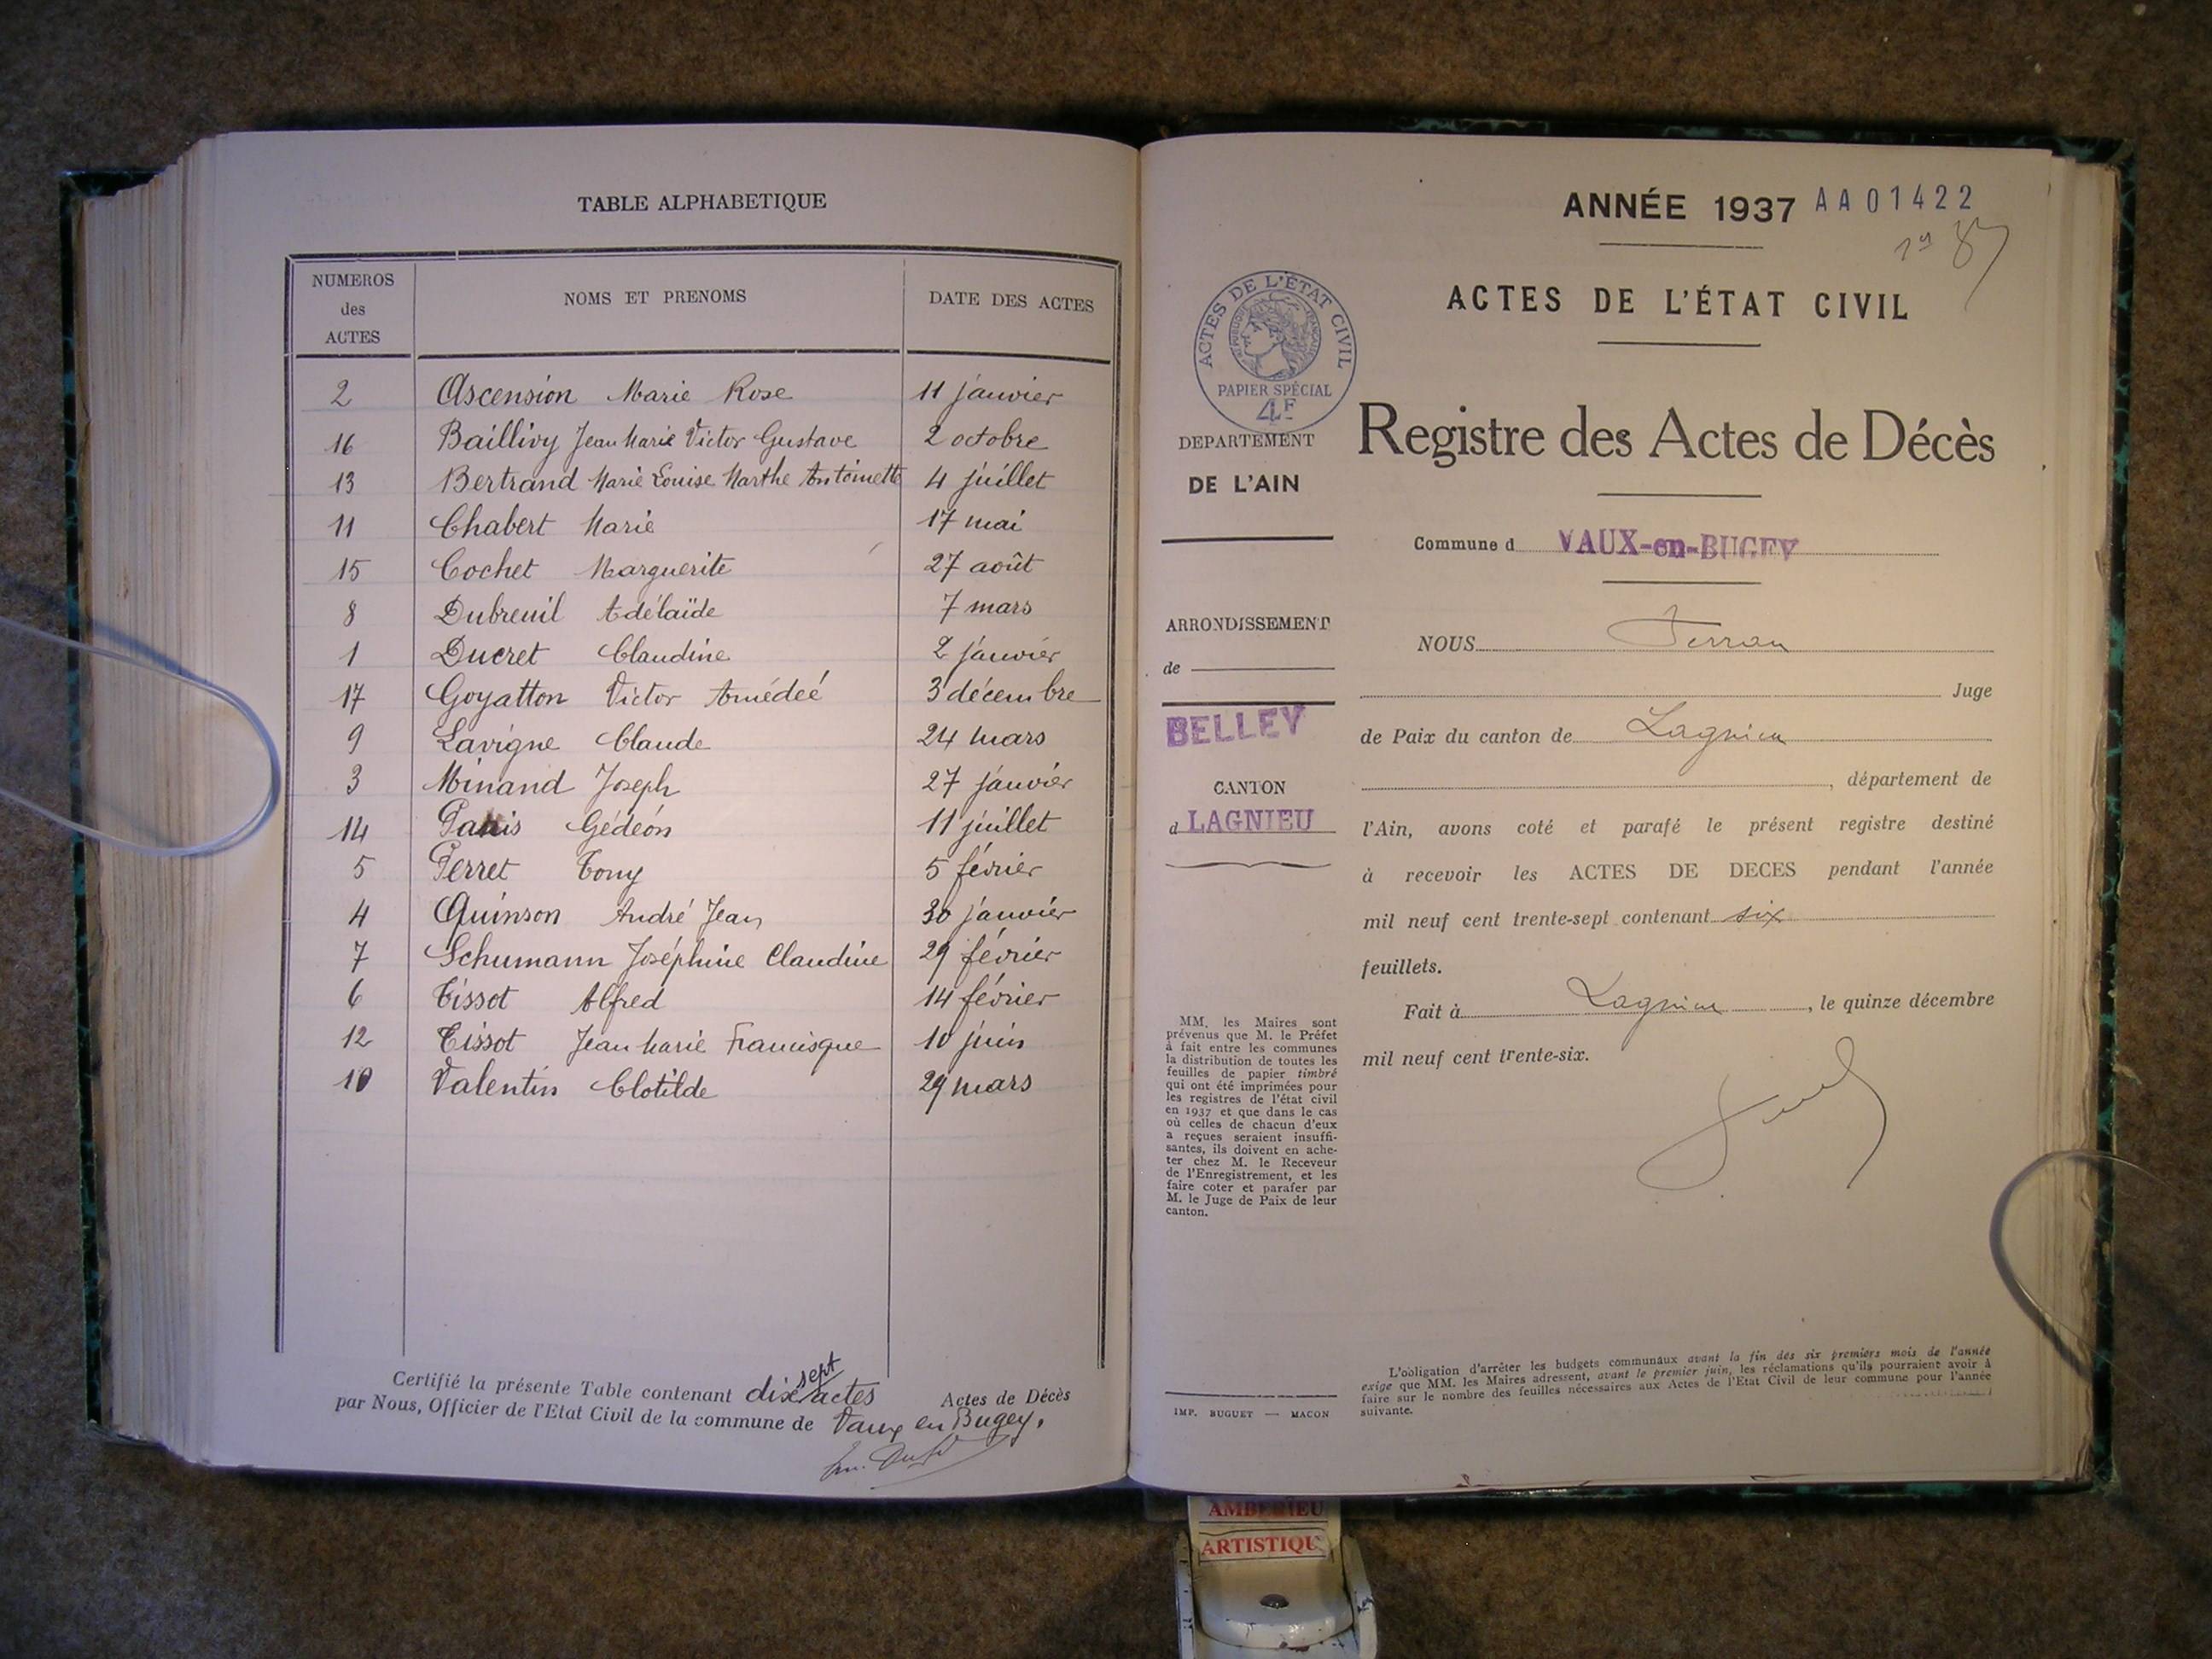 TABLE ALPHABETIQUE
NUMEROS
des
ACTES
NOMS ET PRENOMS
DATE DES ACTES
2 Ascension Marie Rose 11 janvier
16 Baillivy Jean Marie Victor Gustave 2 octobre
13 Bertrand Marie Louise Marthe Antoinette 4 juillet
11 Chabert Marie 17 mai
15 Cochet Marguerite 27 août
8 Dubreuil Adélaïde 7 mars
1 Ducret Claudine 2 janvier
17 Goyatton Victor Amédeé 3 décembre
9 Lavigne Claude 24 mars
3 Minand Joseph 27 janvier
14 Gédéon 11 juillet
5 Perret Tony 5 février
4 Quinson André Jean 30 janvier
7 Schumann Joséphine Claudine 29 février
6 Tissot Alfred 14 février
12 Tissot Jean Marie Francisque 10 juin
10 Valentin Clotilde 29 mars
Certifié la présente Table contenant dix sept actes Actes de Décès
par Nous, Officier de l'Etat Civil de la commune de Vaux en Bugey.
ANNÉE 1937 AA01422
ACTES DE L'ÉTAT CIVIL
ACTES DE L'ÉTAT CIVIL
RÉPUBLIQUE FRANÇAISE
PAPIER SPÉCIAL
4F
DEPARTEMENT
DE L'AIN
ARRONDISSEMENT
de
BELLEY
CANTON
d LAGNIEU
MM. les Maires sont
prévenus que M. le Préfet
à fait entre les communes
la distribution de toutes les
feuilles de papier timbré
qui ont été imprimées pour
les registres de l'état civil
en 1937 et que dans le cas
où celles de chacun d'eux
a reçues seraient insuffi-
santes, ils doivent en ache-
ter chez M. le Receveur
de l'Enregistrement, et les
faire coter et parafer par
M. le Juge de Paix de leur
canton.
IMP. BUGUET — MACON
Registre des Actes de Décès
Commune d VAUX-en-BUGEY
NOUS
Juge
de Paix du canton de Lagnieu
, département de
l'Ain, avons coté et parafé le présent registre destiné
à recevoir les ACTES DE DECES pendant l'année
mil neuf cent trente-sept contenant six
feuillets.
Fait à Lagnieu, le quinze décembre
mil neuf cent trente-six.
L'obligation d'arrêter les budgets communaux avant la fin des six premiers mois de l'année
exige que MM. les Maires adressent, avant le premier juin, les réclamations qu'ils pourraient avoir à
faire sur le nombre des feuilles nécessaires aux Actes de l'Etat Civil de leur commune pour l'année
suivante.
AMBERIEU
ARTISTIQU